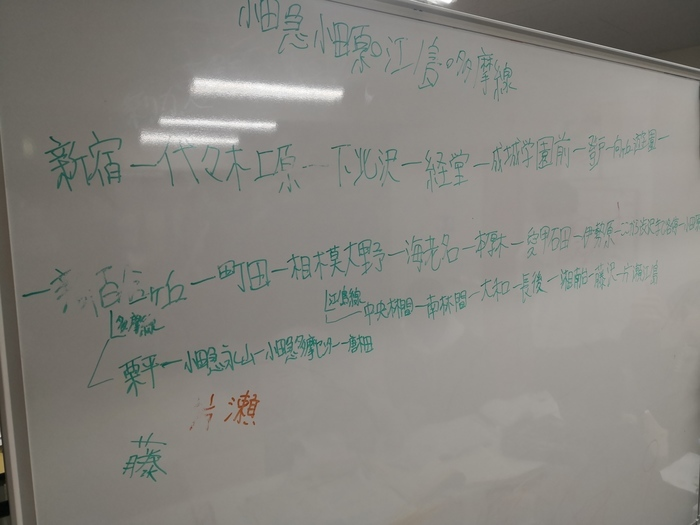 小田急小田原・江ノ島・多摩線
新宿ー代々木上原ー下北沢ー経堂ー成城学園前ー登戸ー向ヶ丘遊園ー
ー新百合ヶ丘ー町田ー相模大野ー海老名ー本厚木ー愛甲石田ー伊勢原ー
江島線
中央林間ー南林間ー大和ー長後ー湘南台ー藤沢ー片瀬江島
多摩線
栗平ー小田急永山ー小田急多摩センターー唐木田
片瀬
藤